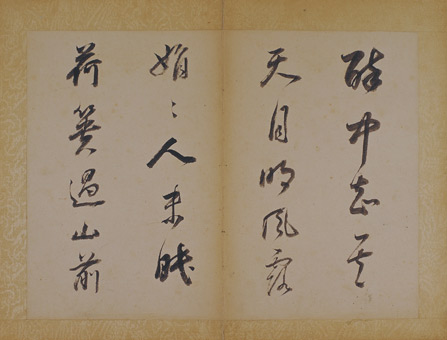 醉中知其
天月明風露
娟〻人未眠
荷蕢過山前